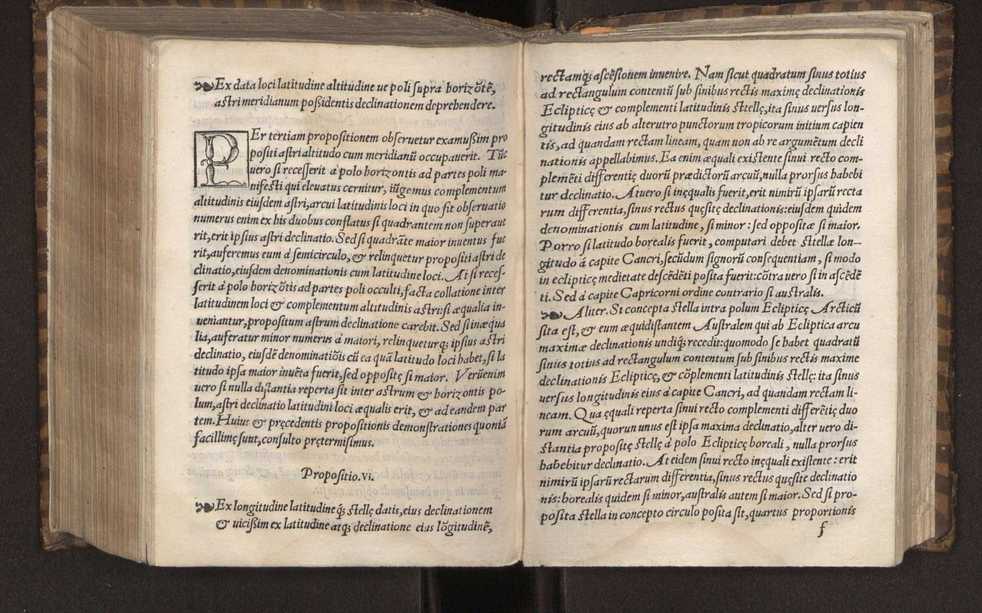 Ex data loci latitudine altitudine ue poli supra horizõtẽ,
astri meridianum poßidentis declinationem deprehendere.
PEr tertiam propositionem obseruetur examußim pro
positi astri altitudo cum meridianũ occupauerit. Tũc
uero si recesserit à polo horizontis ad partes poli ma-
nifesti qui eleuatus cernitur, iũgemus complementum
altitudinis eiusdem astri, arcui latitudinis loci in quo fit obseruatio
numerus enim ex his duobus conflatus si quadrantem non superaue
rit, erit ipsius astri declinatio. Sed si quadrãte maior inuentus fue
rit, auferemus eum à semicirculo, & relinquetur propositi astri de
clinatio, eiusdem denominationis cum latitudine loci. At si reces-
serit à polo horizõtis ad partes poli occulti, facta collatione inter
latitudinem loci & complementum altitudinis astri si æqualia in-
ueniantur, propositum astrum declinatione carebit. Sed si inæqua
lia, auferatur minor numerus à maiori, relinqueturq; ipsius astri
declinatio, eiusdẽ denominatiõis cũ ea quã latitudo loci habet, si la
titudo ipsa maior inuẽta fuerit, sed oppositę si maior. Verũenim
uero si nulla distantia reperta sit inter astrum & horizontis po-
lum, astri declinatio latitudini loci æqualis erit, & ad eandem par
tem. Huius & pręcedentis propositionis demonstrationes quoniã
facillimę sunt, consulto prętermisimus.
Propositio.vi.
Ex longitudine latitudine q́; stellę datis, eius declinationem
& uicißim ex latitudine atq; declinatione eius lõgitudinẽ,
rectamq́; ascẽsionem inuenire. Nam sicut quadratum sinus totius
ad rectangulum contentũ sub sinibus rectis maximę declinationis
Eclipticę & complementi latitudinis stellę, ita sinus uersus lon-
gitudinis eius ab alterutro punctorum tropicorum initium capien
tis, ad quandam rectam lineam, quam non ab re argumẽtum decli
nationis appellabimus. Ea enim æquali existente sinui recto com-
plemẽti differentię duorũ prædictorũ arcuũ, nulla prorsus habebi
tur declinatio. At uero si inęqualis fuerit, erit nimirũ ipsarũ recta
rum differentia, sinus rectus quęsitę declinationis: eiusdem quidem
denominationis cum latitudine, si minor: sed oppositæ si maior.
Porro si latitudo borealis fuerit, computari debet stellæ lon-
gitudo à capite Cancri, secũdum signorũ consequentiam, si modo
in eclipticę medietate descẽdẽti posita fuerit: cõtra uero si in ascẽdẽ
ti. Sed à capite Capricorni ordine contrario si australis.
Aliter. Si concepta stella intra polum Eclipticę Arcticũ
sita est, & eum æquidistantem Australem qui ab Ecliptica arcu
maximæ declinationis undiq; recedit: quomodo se habet quadratũ
sinus totius ad rectangulum contentum sub sinibus rectis maxime
declinationis Eclipticę, & cõplementi latitudinis stellę: ita sinus
uersus longitudinis eius à capite Cancri, ad quandam rectam li-
neam. Qua ęquali reperta sinui recto complementi differẽtię duo
rum arcuũ, quorun unus est ipsa maxima declinatio, alter uero di-
stantia propositę stellę à polo Eclipticę boreali, nulla prorsus
habebitur declinatio. At eidem sinui recto inęquali existente: erit
nimirũ ipsarũ rectarum differentia, sinus rectus quęsitę declinatio
nis: borealis quidem si minor, australis autem si maior. Sed si pro-
posita stella in concepto circulo posita sit, quartus proportionis
f